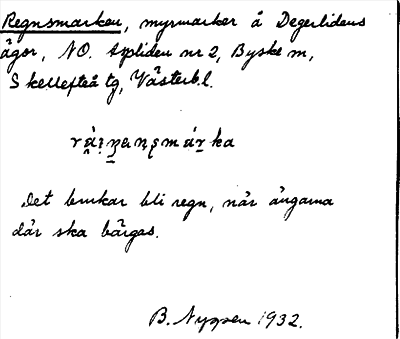 Regnsmarken, myrmarker å Degerlidens
ägor, NO. Aspliden nr 2, Byske sn,
Skellefteå tg, Västerb.l.
Det brukar bli regn, når ängarna
där ska bärgas.
B. Nyssen 1932.